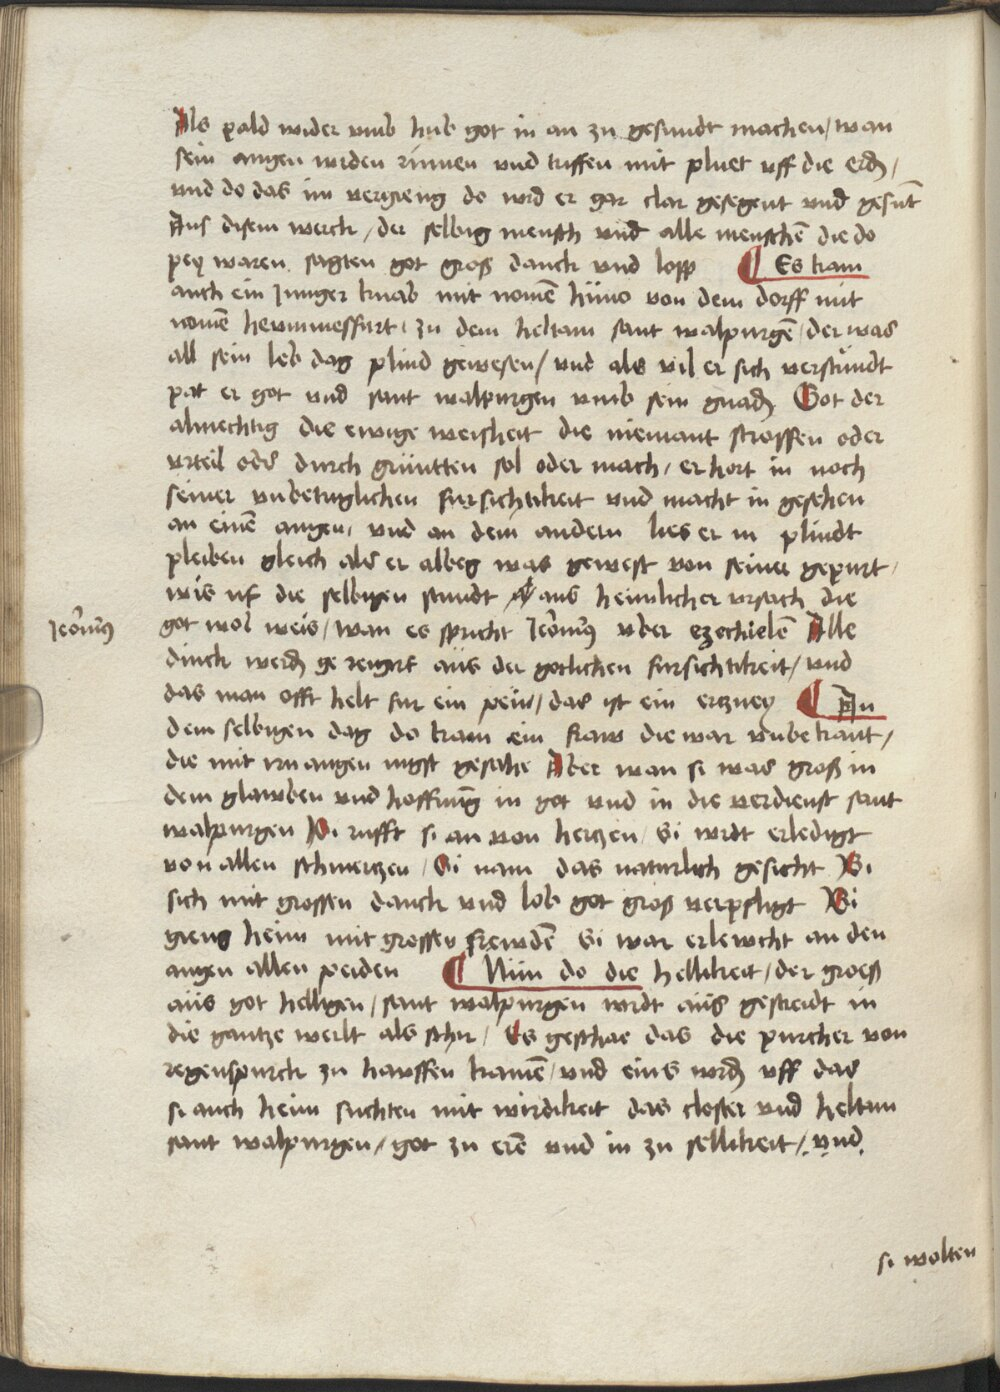 Als pald wider vmb hub got in an zu gesundt machen / wan
sein augen wrden rinnen vnd triffen mit pluet vff die erdn /
vnd do das im vergieng do wrd er gar clar gesegent vnd gesunt
Aus disem werck / der selbig mensch vnd alle menschen die do
pey waren sagten got groß danck vnd lopp ¶ Es kam
auch ein Junger knab mit nomen hüno von dem dorff mit
nomen hewinnessfurt / zu dem heltam sant walpurgen / der was
all sein leb dag plind gewesen / vnd als vil er sich verstundt
pat er got vnd sant walpurgen vmb sein gnadn Got der
almechtig die ewige weisheit die niemant stroffen oder
vrteil oder durch grüntten sol oder mach / er hort in noch
seiner vnbetruglichen fursichtikeit vnd macht in gesehen
an einem augen / vnd an dem andern lies er in plindt
pleiben gleich als er albeg was gewest von seiner gepurt /
wis uf die selbigen stundt aus heimlicher vrsach die
Jeronimus
got wol weis / wan es spricht Jeronimus vber ezechielem Alle
dinck werdn ge rengirt aüs der gotlichen fursichtikeit / vnd
das man offt helt fur ein pein / das ist ein erczney ¶ An
dem selbigen dag do kam ein fraw die war vnbekant /
die mit irn augen nigst gesahe Aber wan si was groß in
dem glawben vnd hoffnung in got vnd in die verdienst sant
walpurgen Si rufft si an von hertzen / Si wrdt erledigt
von allen schmerczen / Si nam das naturlich gesicht Si
sich mit grossen danck vnd lob got groß verpfligt Si
gieng heim mit grossen frewden Si war erlewcht an den
augen allen peiden ¶ Nün do die hellikeit / der groeß
aüs got helligen / sant walpurgen wrdt aüs gestreidt in
die gantze werlt als schir / Es geschae das die purcher von
regenspurck zu hauffen kamen / vnd eins wrdn vff das
si auch heim suchten mit wirdikeit das closter vnd heltum
sant walpurgen / got zu eren vnd in zu sellikeit / vnd
si wolten